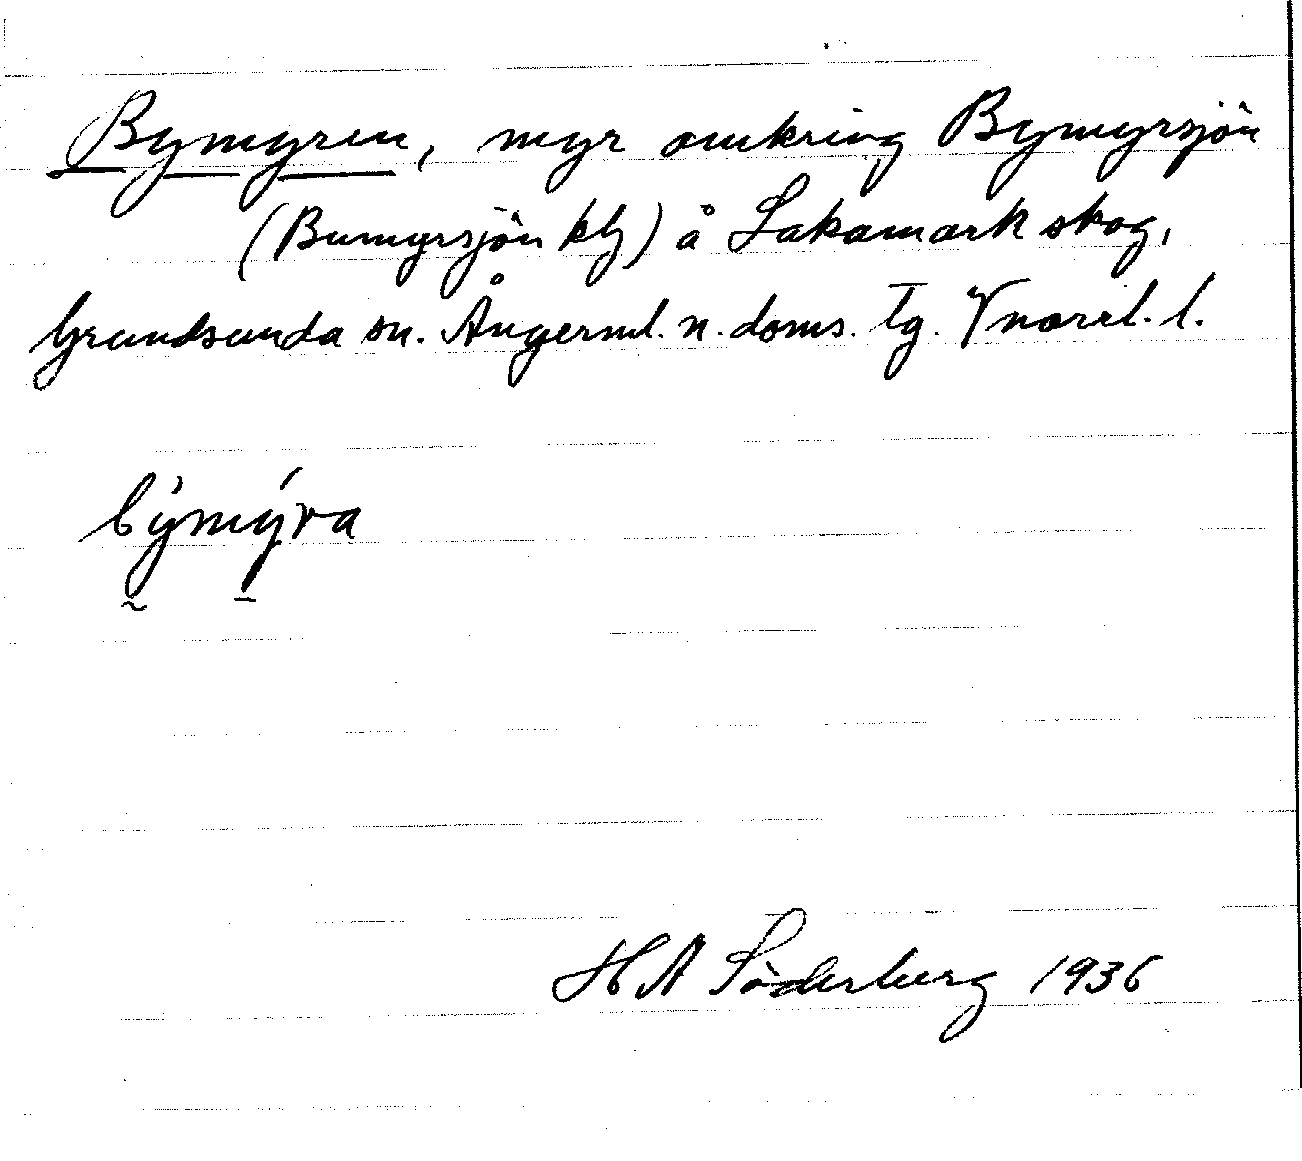 Bymyren, myr omkring Bymyrsjön
(Bumyrsjön kbl) å Lakamark skog,
Grundsunda sn. Ångerml. n. doms. tg. Vnorrl. l.
bỳmýra
H A Söderberg 1936